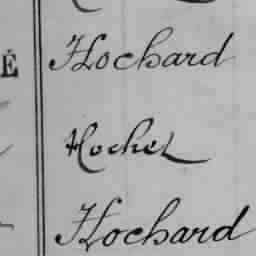 É
Hochard
Hochet
Hochard